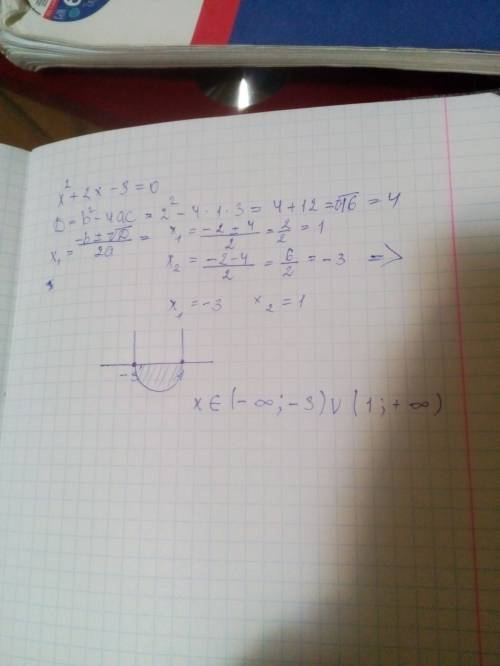 x² + 2x - 3 = 0
D = b² - 4ac = 2² - 4 · 1 · 3 = 4 + 12 = √16 = 4
x₁ = \frac{-b ± √D}{2a} = x₁ = \frac{-2 ± 4}{2} = \frac{2}{2} = 1
x₂ = \frac{-2-4}{2} = \frac{6}{2} = -3 =>
x₁ = -3 x₂ = 1
-3 1
x ∈ (-∞; -3) ∪ (1; +∞)